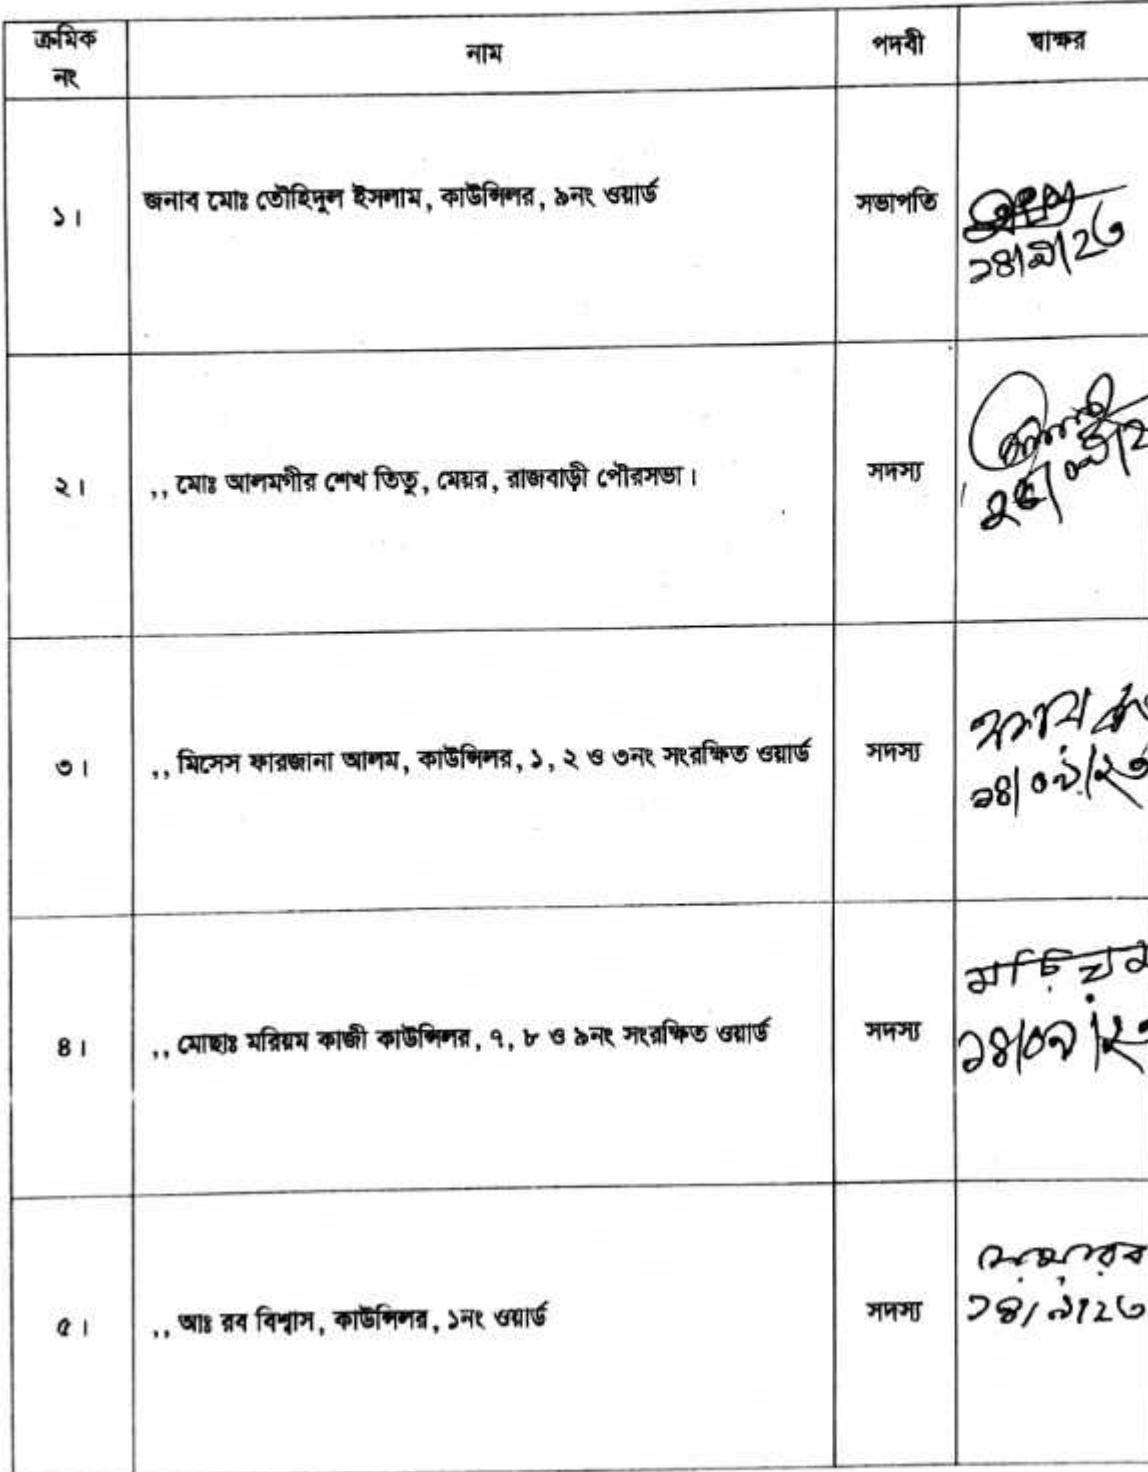 ক্রমিক নং নাম পদবী স্বাক্ষর
১। জনাব মোঃ তৌহিদুল ইসলাম, কাউন্সিলর, ৯নং ওয়ার্ড সভাপতি
১৪/৯/২৩
২। ,, মোঃ আলমগীর শেখ তিতু, মেয়র, রাজবাড়ী পৌরসভা। সদস্য
৩। ,, মিসেস ফারজানা আলম, কাউন্সিলর, ১, ২ ও ৩নং সংরক্ষিত ওয়ার্ড সদস্য
১৪/০৯/২৩
৪। ,, মোছাঃ মরিয়ম কাজী কাউন্সিলর, ৭, ৮ ও ৯নং সংরক্ষিত ওয়ার্ড সদস্য
মরিয়ম
১৪/০৯/২৩
৫। ,, আঃ রব বিশ্বাস, কাউন্সিলর, ১নং ওয়ার্ড সদস্য
১৪/৯/২৩